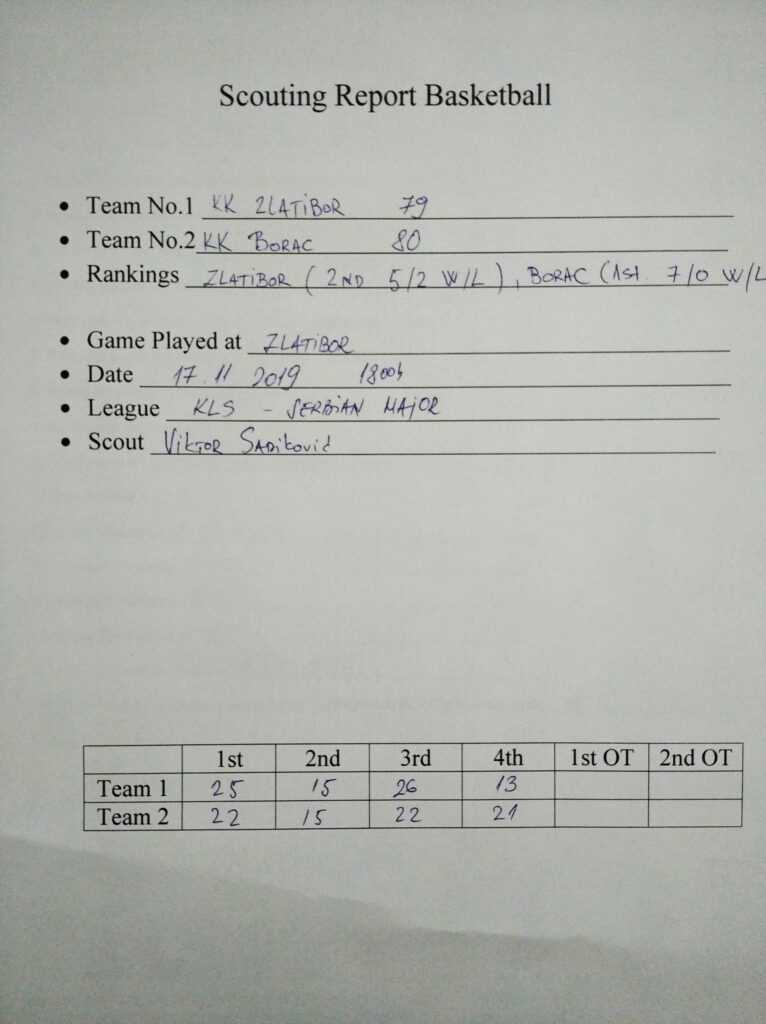 Scouting Report Basketball
• Team No.1 KK ZLATIBOR 79
• Team No.2 KK BORAC 80
• Rankings ZLATIBOR (2ND 5/2 W/L), BORAC (1st 7/0 W/L
• Game Played at ZLATIBOR
• Date 17.11 2019 1800h
• League KLS - SERBIAN MAJOR
• Scout Viktor Sadiković
1st 2nd 3rd 4th 1st OT 2nd OT
Team 1 25 15 26 13
Team 2 22 15 22 21